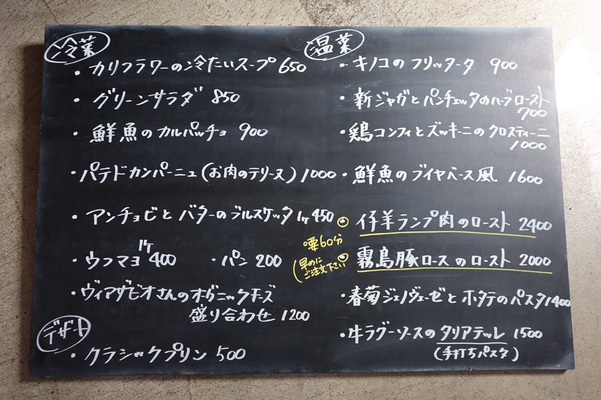 冷菜
・カリフラワーの冷たいスープ 650
・グリーンサラダ 850
・鮮魚のカルパッチョ 900
・パテドカンパーニュ(お肉のテリーヌ) 1000
・アンチョビとバターのブルスケッタ 1ケ 450
・ウフマヨ 1ケ 400 ・パン 200
・ヴィアザビオさんのオーガニックチーズ
盛り合わせ 1200
デザート
・クラシックプリン 500
温菜
・キノコのフリッタータ 900
・新ジャガとパンチェッタのハーブロースト
700
・鶏コンフィとズッキーニのクロスティーニ
1000
・鮮魚のブイヤベース風 1600
仔羊ランプ肉のロースト 2400
要60分
(早めに
ご注文下さい)
霧島豚ロースのロースト 2000
・春菊ジェノヴェーゼとホタテのパスタ 1400
・牛ラグーソースのタリアテッレ 1500
(手打ちパスタ)